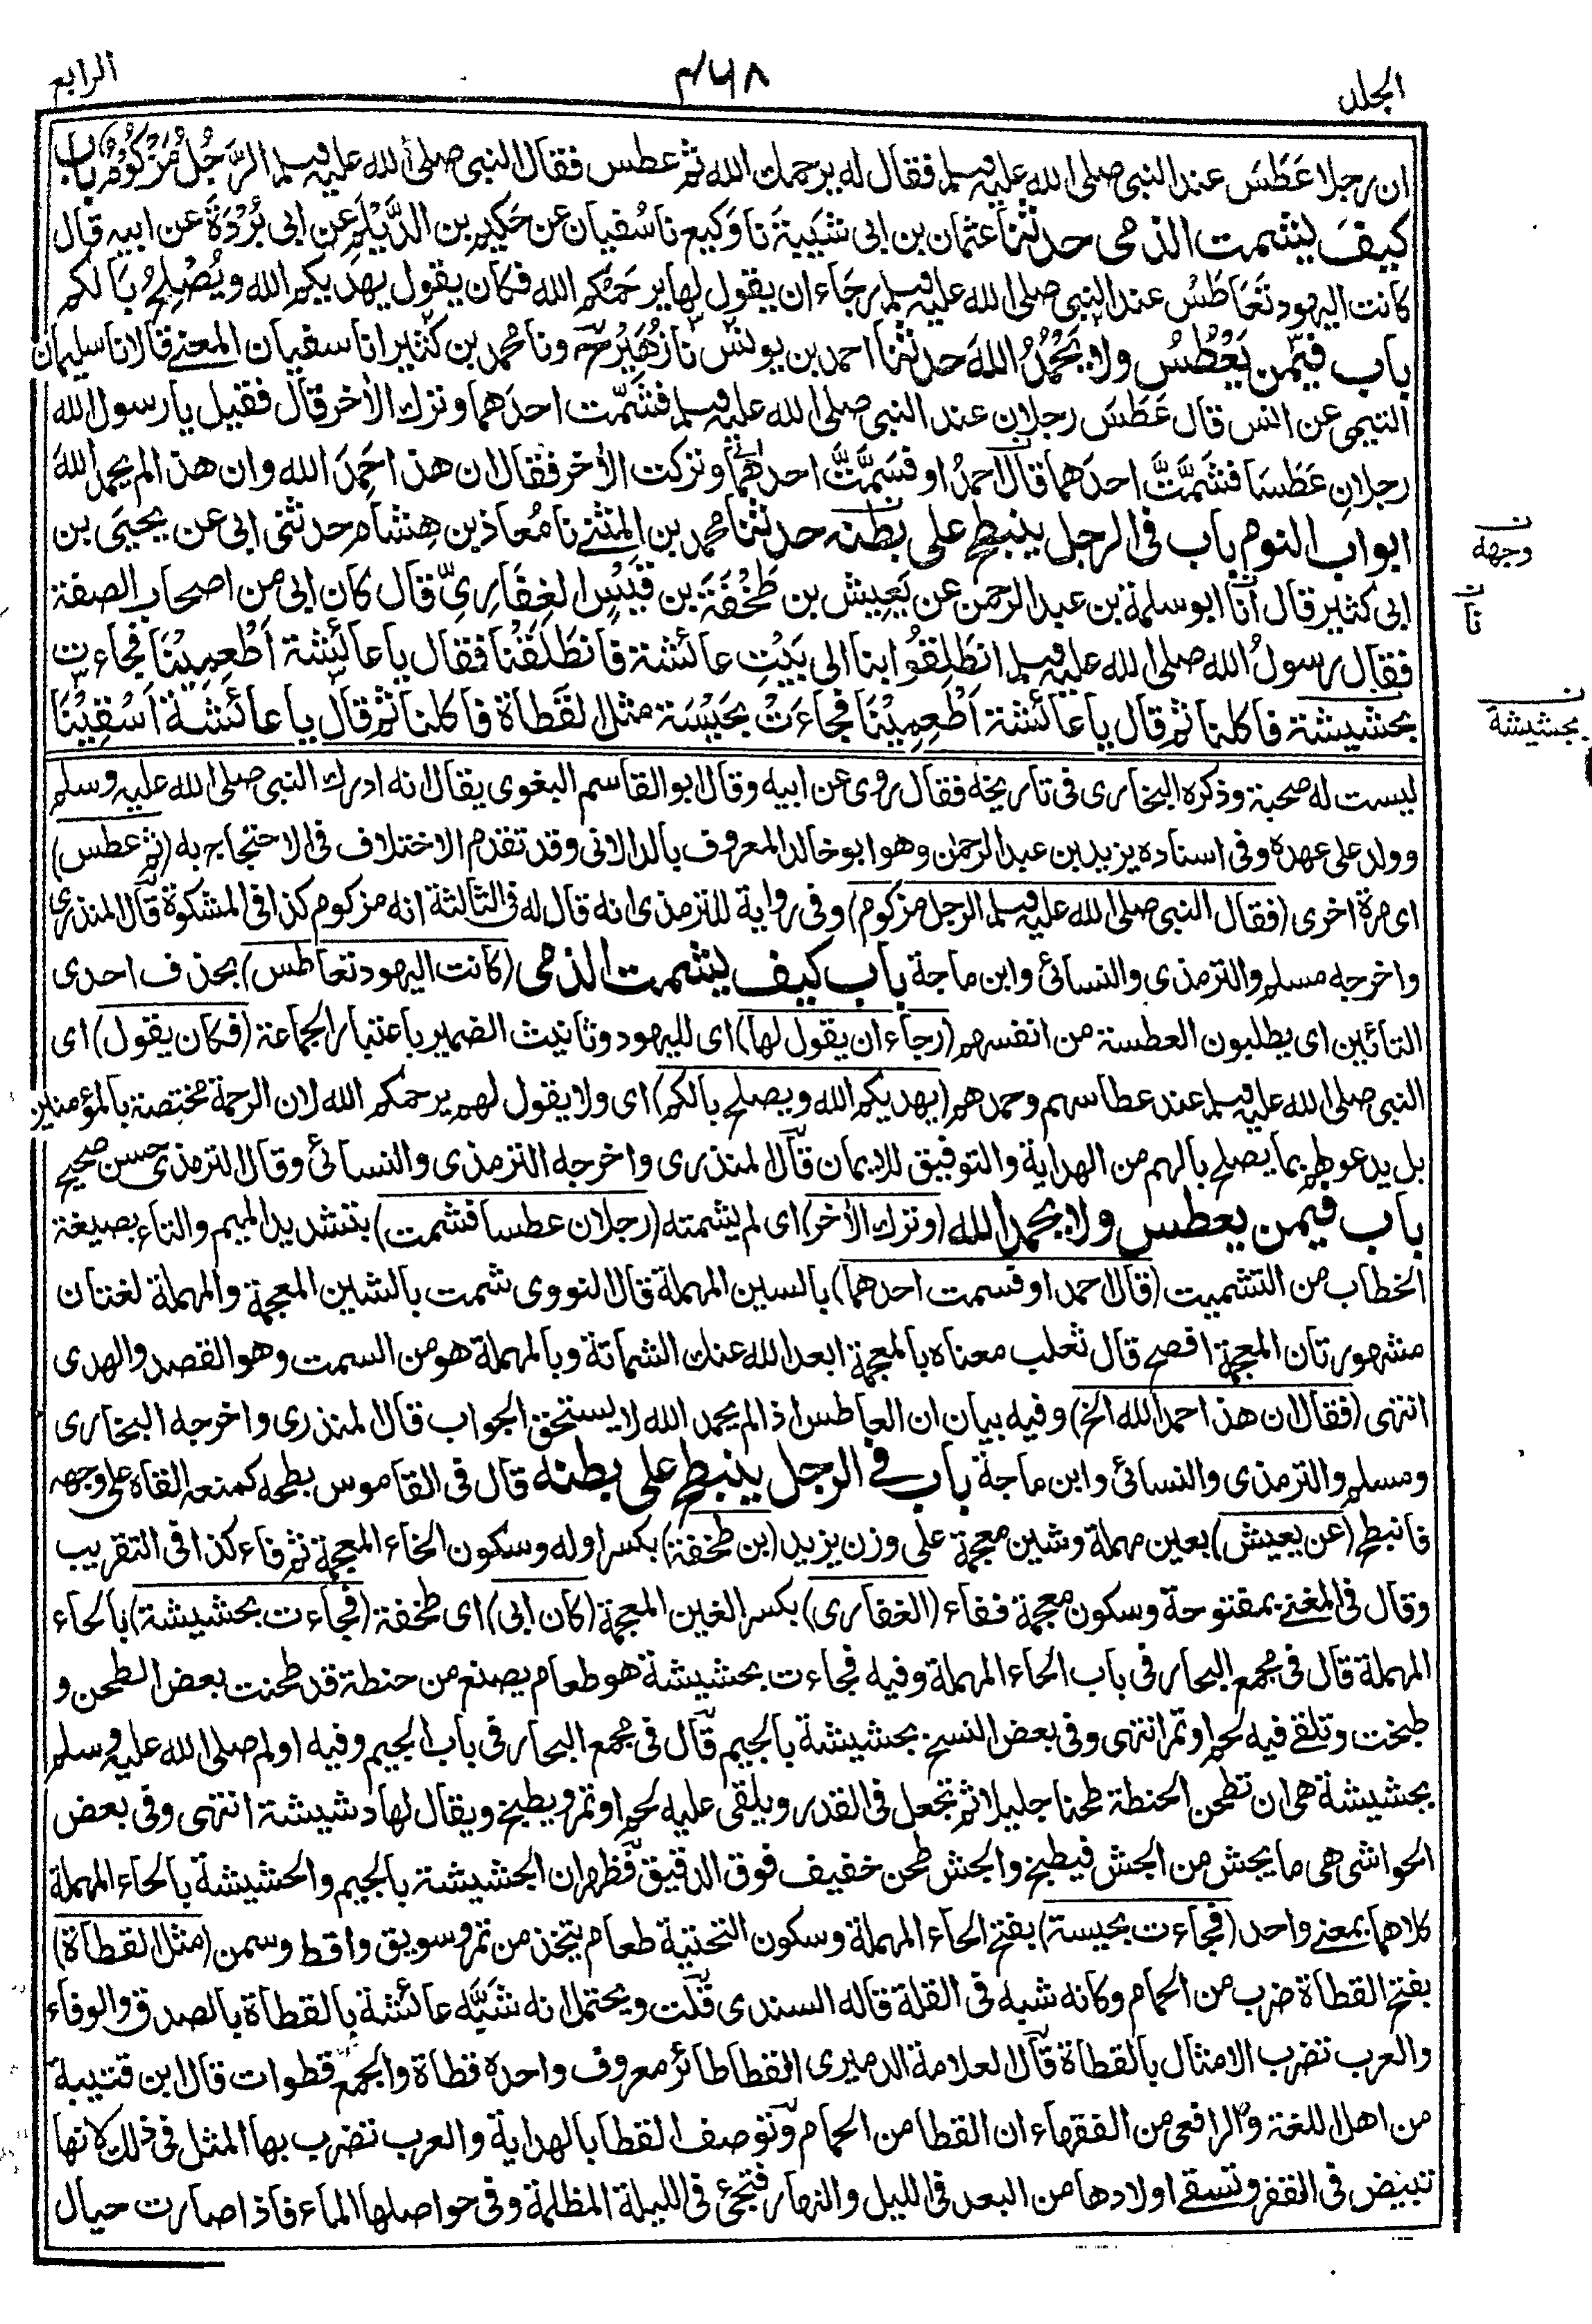 الجلد
۴۶۸
الرابع
ان رجلا عَطَسَ عند النبى صلى الله عليه وسلم فقال له يرحمك الله ثم عطس فقال النبى صلى الله عليه وسلم الرَّجُلُ مَزْكُومٌ باب
كيفَ يشمت الذمى حدثنا عثمان بن ابى شَيْبَةَ نا وَكيع نا سُفيان عن حَكِيْمِ بن الدَّيْلَمِ عن ابى بُرْدَةَ عن ابيه قال
كانت اليهود تَعَاطَسُ عند النبى صلى الله عليه وسلم رجَاءَ ان يقول لها يَرحَمُكم الله فكان يقول يهديكم الله ويُصْلِحُ بَالكم
باب فيمن يَعْطُسُ ولا يَحْمَدُ اللهَ حدثنا احمد بن يونس نا زُهَيْرٌ ح ونا محمد بن كثير انا سفيان المعنى قالا نا سليمان
التيمى عن انس قال عَطَسَ رجلان عند النبى صلى الله عليه وسلم فشَمَّت احدَهما وترك الأخر قال فقيل يا رسول الله
رجلانِ عَطَسَا فشَمَّتَّ احدَهما قال احمدُ او فسَمَّتَّ احدهما وتركت الأخر فقال ان هذا حَمِدَ الله وان هذا لم يحمد اللهَ
ابواب النوم باب فى الرجل ينبطح على بطنه حدثنا محمد بن المثنى نا مُعاذ بن هِشَام حدثنى ابى عن يحيَى بن
ابى كثير قال نا ابو سلمة بن عبد الرحمن عن يَعِيش بن طَخْفَةَ بن قَيْسٍ الغِفَارِيِّ قال كان ابى من اصحاب الصفة
فقال رسولُ الله صلى الله عليه وسلم انطَلِقُوا بنا الى بَيْتِ عائشة فانطَلَقْنَا فقال يا عائشة اَطْعِمِيْنَا فجاءت
بحشيشة فاكلنا ثم قال يا عائشة اَطْعِمِيْنَا فجاءَتْ بحَيْسَة مثل القَطاة فاكلنا ثم قال يا عائشة اَسْقِيْنَا
وجهه
نا
بجشيشة
ليست له صحبة وذكره البخارى فى تاريخه فقال روى عن ابيه وقال ابو القاسم البغوى يقال انه ادرك النبى صلى الله عليه وسلم
وولد على عهده وفى اسناده يزيد بن عبد الرحمن وهو ابو خالد المعروف بالدالانى وقد تقدم الاختلاف فى الاحتجاج به (ثم عطس)
اى مرة اخرى (فقال النبى صلى الله عليه وسلم الرجل مزكوم) وفى رواية للترمذى انه قال له فى الثالثة انه مزكوم كذا فى المشكوة قال المنذرى
واخرجه مسلم والترمذى والنسائى وابن ماجة باب كيف يشمت الذمى (كانت اليهود تعاطس) بحذف احدى
التائين اى يطلبون العطسة من انفسهم (رجاء ان يقول لها) اى لليهود وتانيث الضمير باعتبار الجماعة (فكان يقول) اى
النبى صلى الله عليه وسلم عند عطاسهم وحمدهم (يهديكم الله ويصلح بالكم) اى ولا يقول لهم يرحمكم الله لان الرحمة مختصة بالمؤمنين
بل يدعو لهم بما يصلح بالهم من الهداية والتوفيق للايمان قال المنذرى واخرجه الترمذى والنسائى وقال الترمذى حسن صحيح
باب فيمن يعطس ولا يحمد الله (وترك الأخر) اى لم يشمته (رجلان عطسا فشمت) بتشديد الميم والتاء بصيغة
الخطاب من التشميت (قال احمد او فسمت احدهما) بالسين المهملة قال النووى شمت بالشين المعجمة والمهملة لغتان
مشهورتان المعجمة افصح قال ثعلب معناه بالمعجمة ابعد الله عنك الشماتة وبالمهملة هو من السمت وهو القصد والهدى
انتهى (فقال ان هذا حمد الله الخ) وفيه بيان ان العاطس اذا لم يحمد الله لا يستحق الجواب قال المنذرى واخرجه البخارى
ومسلم والترمذى والنسائى وابن ماجة باب فى الرجل ينبطح على بطنه قال فى القاموس بطحه كمنعه القاه على وجهه
فانبطح (عن يعيش) بعين مهملة وشين معجمة على وزن يزيد (بن طخفة) بكسر اوله وسكون الخاء المعجمة ثم فاء كذا فى التقريب
وقال فى المغنى بمفتوحة وسكون معجمة ففاء (الغفارى) بكسر الغين المعجمة (كان ابى) اى طخفة (فجاءت بحشيشة) بالحاء
المهملة قال فى مجمع البحار فى باب الحاء المهملة وفيه فجاءت بحشيشة هو طعام يصنع من حنطة قد طحنت بعض الطحن و
طبخت وتلقى فيه لحم او تمر انتهى وفى بعض النسخ بجشيشة بالجيم قال فى مجمع البحار فى باب الجيم وفيه اولم صلى الله عليه وسلم
بجشيشة هى ان تطحن الحنطة طحنا جليلا ثم تجعل فى القدر ويلقى عليه لحم او تمر ويطبخ ويقال لها دشيشة انتهى وفى بعض
الحواشى هى ما يجش من الجش فيطبخ والجش طحن خفيف فوق الدقيق فظهر ان الجشيشة بالجيم والحشيشة بالحاء المهملة
كلاهما بمعنى واحد (فجاءت بحيسة) بفتح الحاء المهملة وسكون التحتية طعام يتخذ من تمر وسويق واقط وسمن (مثل القطاة)
بفتح القطاة ضرب من الحمام وكانه شبه فى القلة قاله السندى قلت ويحتمل انه شبّه عائشة بالقطاة بالصدق والوفاء
والعرب تضرب الامثال بالقطاة قال العلامة الدميرى القطا طائر معروف واحده قطاة والجمع قطوات قال ابن قتيبة
من اهل اللغة والرافعى من الفقهاء ان القطا من الحمام وتوصف القطا بالهداية والعرب تضرب بها المثل فى ذلك لانها
تبيض فى القفر وتسقى اولادها من البعد فى الليل والنهار فتجئ فى الليلة المظلمة وفى حواصلها الماء فاذا صارت حيال